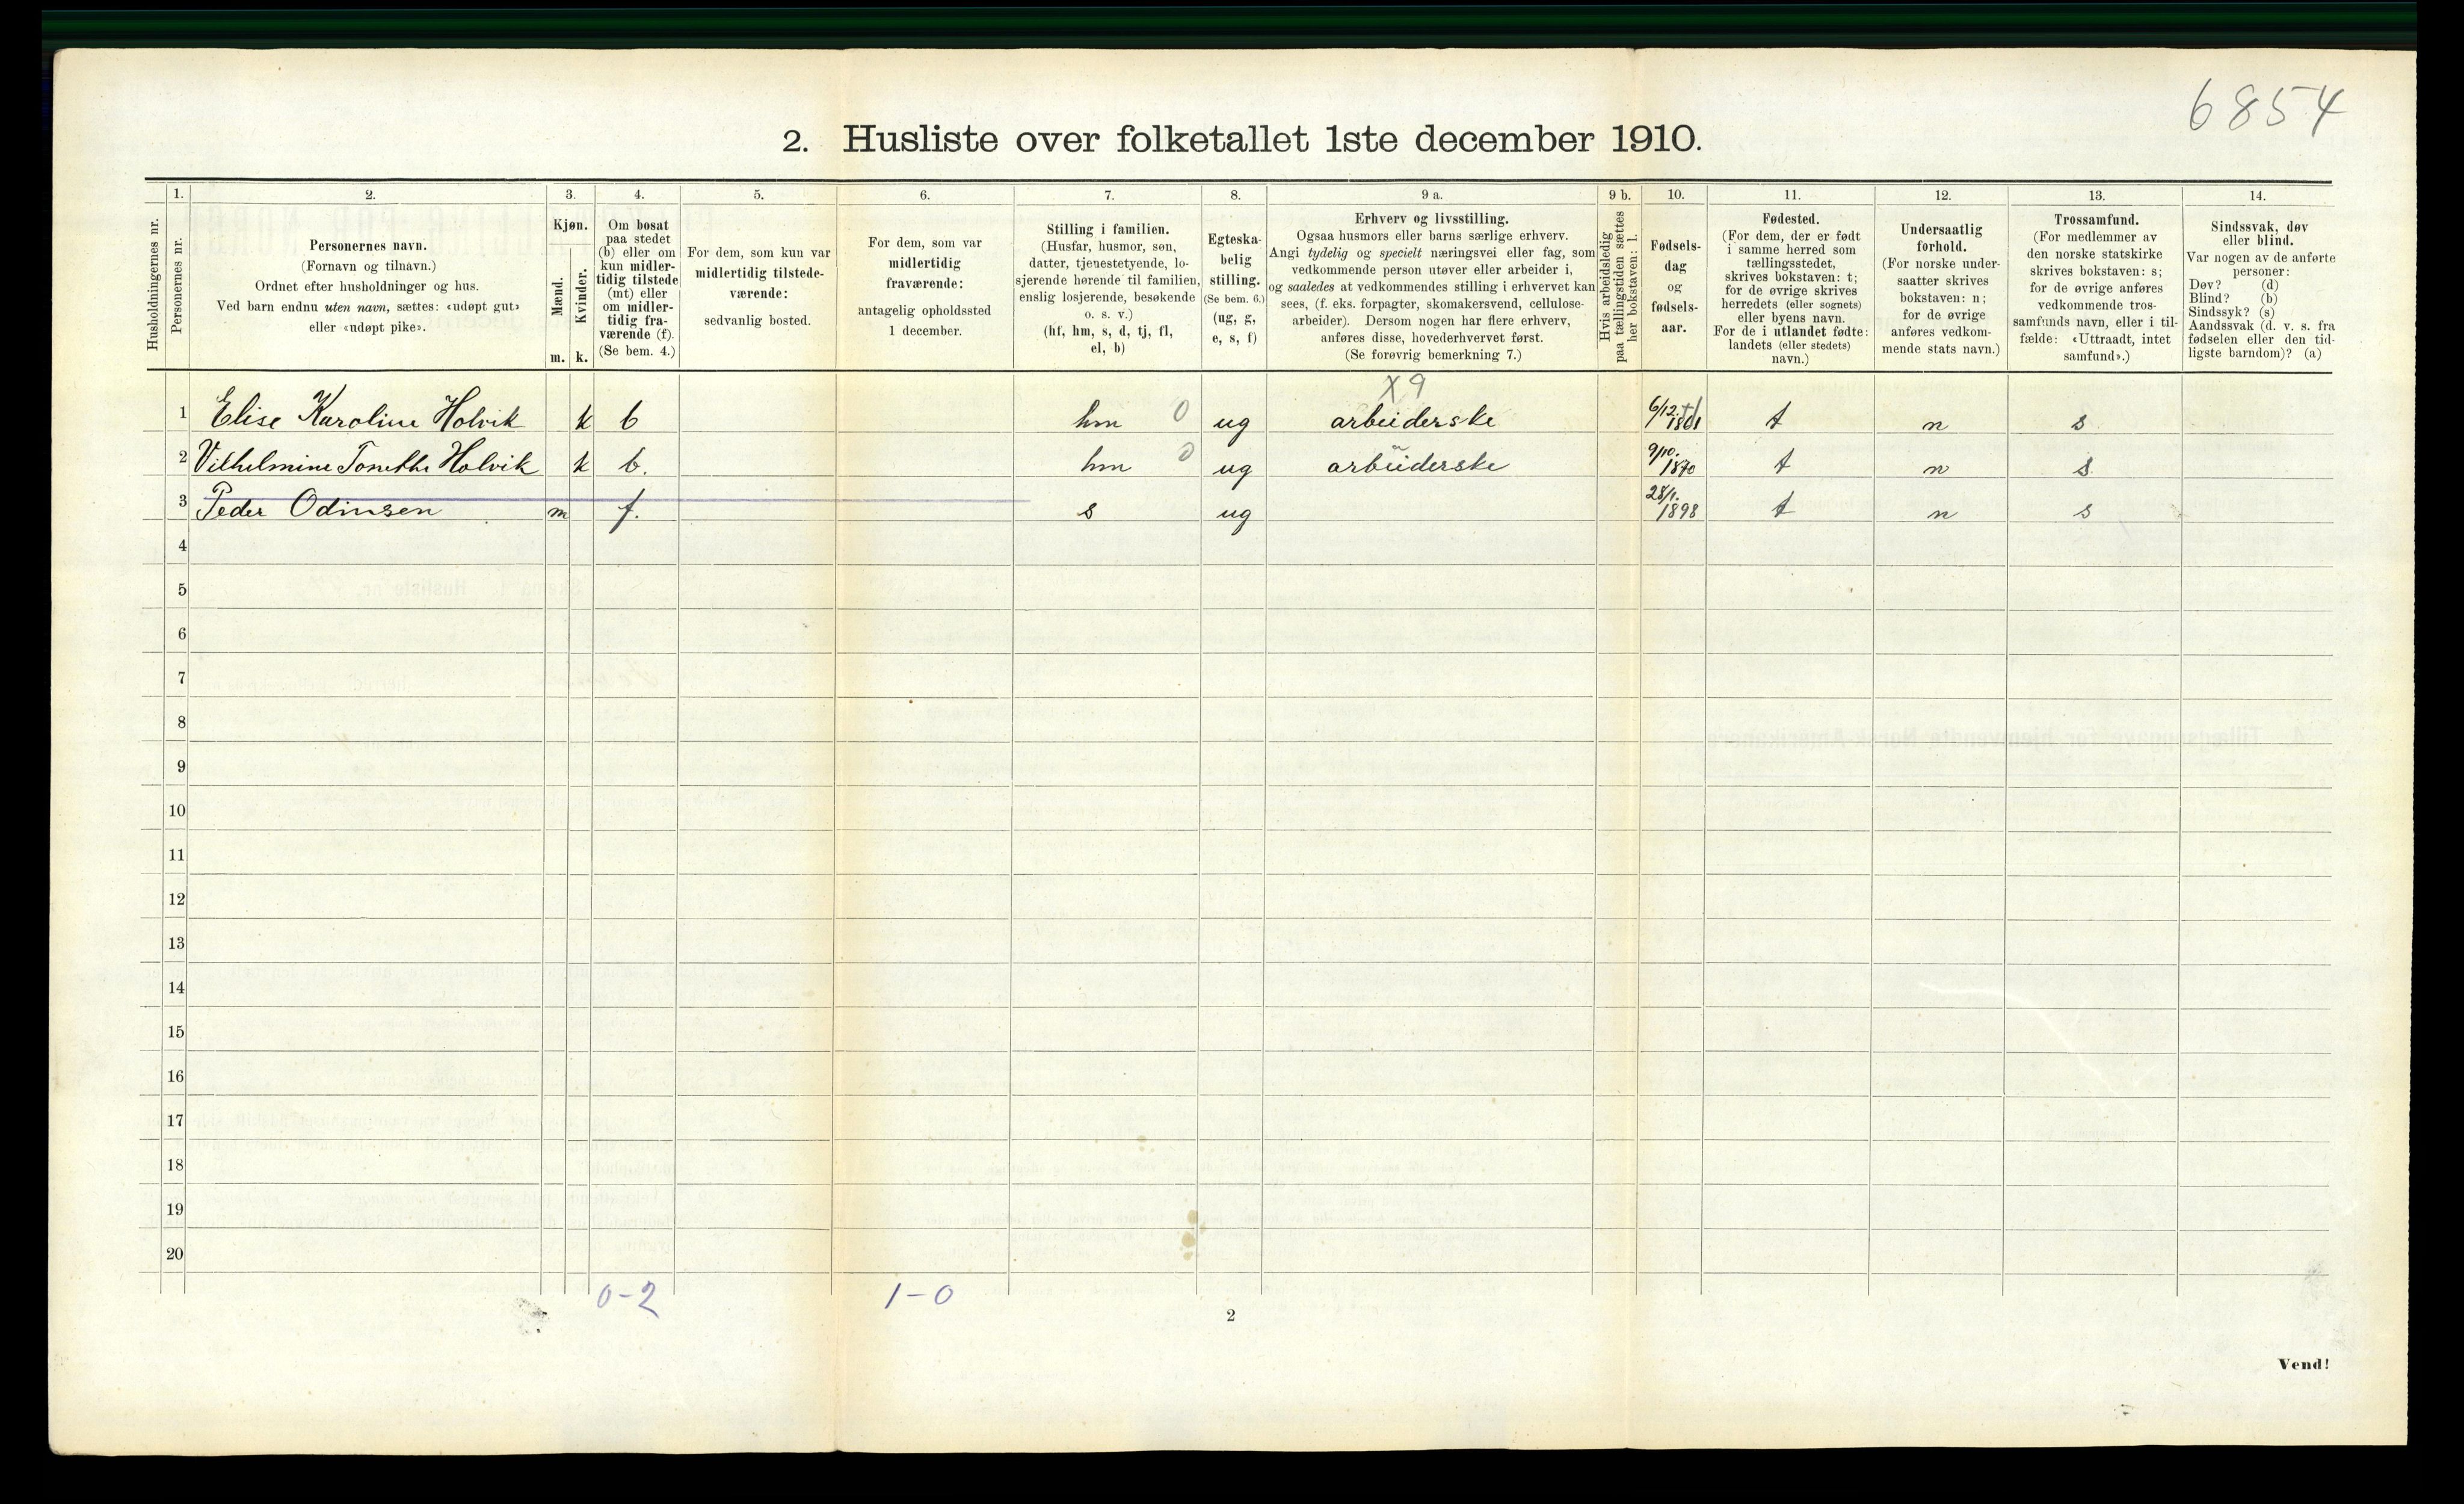 6854
2. Husliste over folketallet 1ste december 1910.
Husholdningernes nr.
1.
Personernes nr.
2.
Personernes navn.
(Fornavn og tilnavn.)
Ordnet efter husholdninger og hus.
Ved barn endnu uten navn, sættes: «udøpt gut»
eller «udøpt pike».
3.
Kjøn.
Mænd.
Kvinder.
m. k.
4.
Om bosat
paa stedet
(b) eller om
kun midler-
tidig tilstede
(mt) eller
om midler-
tidig fra-
værende (f).
(Se bem. 4.)
5.
For dem, som kun var
midlertidig tilstede-
værende:
sedvanlig bosted.
6.
For dem, som var
midlertidig
fraværende:
antagelig opholdssted
1 december.
7.
Stilling i familien.
(Husfar, husmor, søn,
datter, tjenestetyende, lo-
sjerende hørende til familien,
enslig losjerende, besøkende
o. s. v.)
(hf, hm, s, d, tj, fl,
el, b)
8.
Egteska-
belig
stilling.
(Se bem. 6.)
(ug, g,
e, s, f)
9 a.
Erhverv og livsstilling.
Ogsaa husmors eller barns særlige erhverv.
Angi tydelig og specielt næringsvei eller fag, som
vedkommende person utøver eller arbeider i,
og saaledes at vedkommendes stilling i erhvervet kan
sees, (f. eks. forpagter, skomakersvend, cellulose-
arbeider). Dersom nogen har flere erhverv,
anføres disse, hovederhvervet først.
(Se forøvrig bemerkning 7.)
9 b.
Hvis arbeidsledig
paa tællingstiden sættes
her bokstaven: l.
10.
Fødsels-
dag
og
fødsels-
aar.
11.
Fødested.
(For dem, der er født
i samme herred som
tællingsstedet,
skrives bokstaven: t;
for de øvrige skrives
herredets (eller sognets)
eller byens navn.
For de i utlandet fødte:
landets (eller stedets)
navn.)
12.
Undersaatlig
forhold.
(For norske under-
saatter skrives
bokstaven: n;
for de øvrige
anføres vedkom-
mende stats navn.)
13.
Trossamfund.
(For medlemmer av
den norske statskirke
skrives bokstaven: s;
for de øvrige anføres
vedkommende tros-
samfunds navn, eller i til-
fælde: «Uttraadt, intet
samfund».)
14.
Sindssvak, døv
eller blind.
Var nogen av de anførte
personer:
Døv? (d)
Blind? (b)
Sindssyk? (s)
Aandssvak (d. v. s. fra
fødselen eller den tid-
ligste barndom)? (a)
X9
1 Elise Karoline Holvik k b hm 0 ug arbeiderske 6/12 t n s
2 Vilhelmine Tonette Holvik k b. hm 0 ug arbeiderske 9/10. 1870 t n s
3 Peder Odinsen m f. s ug 28/1. 1898 t n s
4
5
6
7
8
9
10
11
12
13
14
15
16
17
18
19
20
0-2 1-0
2
Vend!